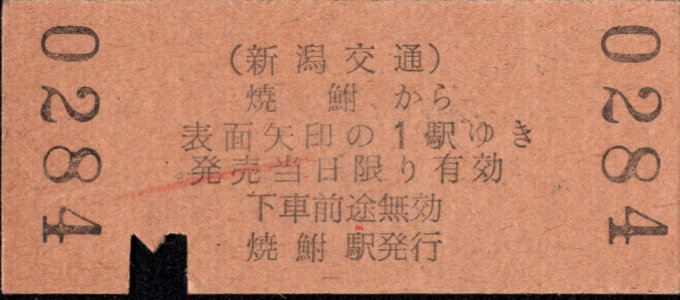 0284
(新潟交通)
焼鮒から
表面矢印の1駅ゆき
発売当日限り有効
下車前途無効
焼鮒駅発行
0284